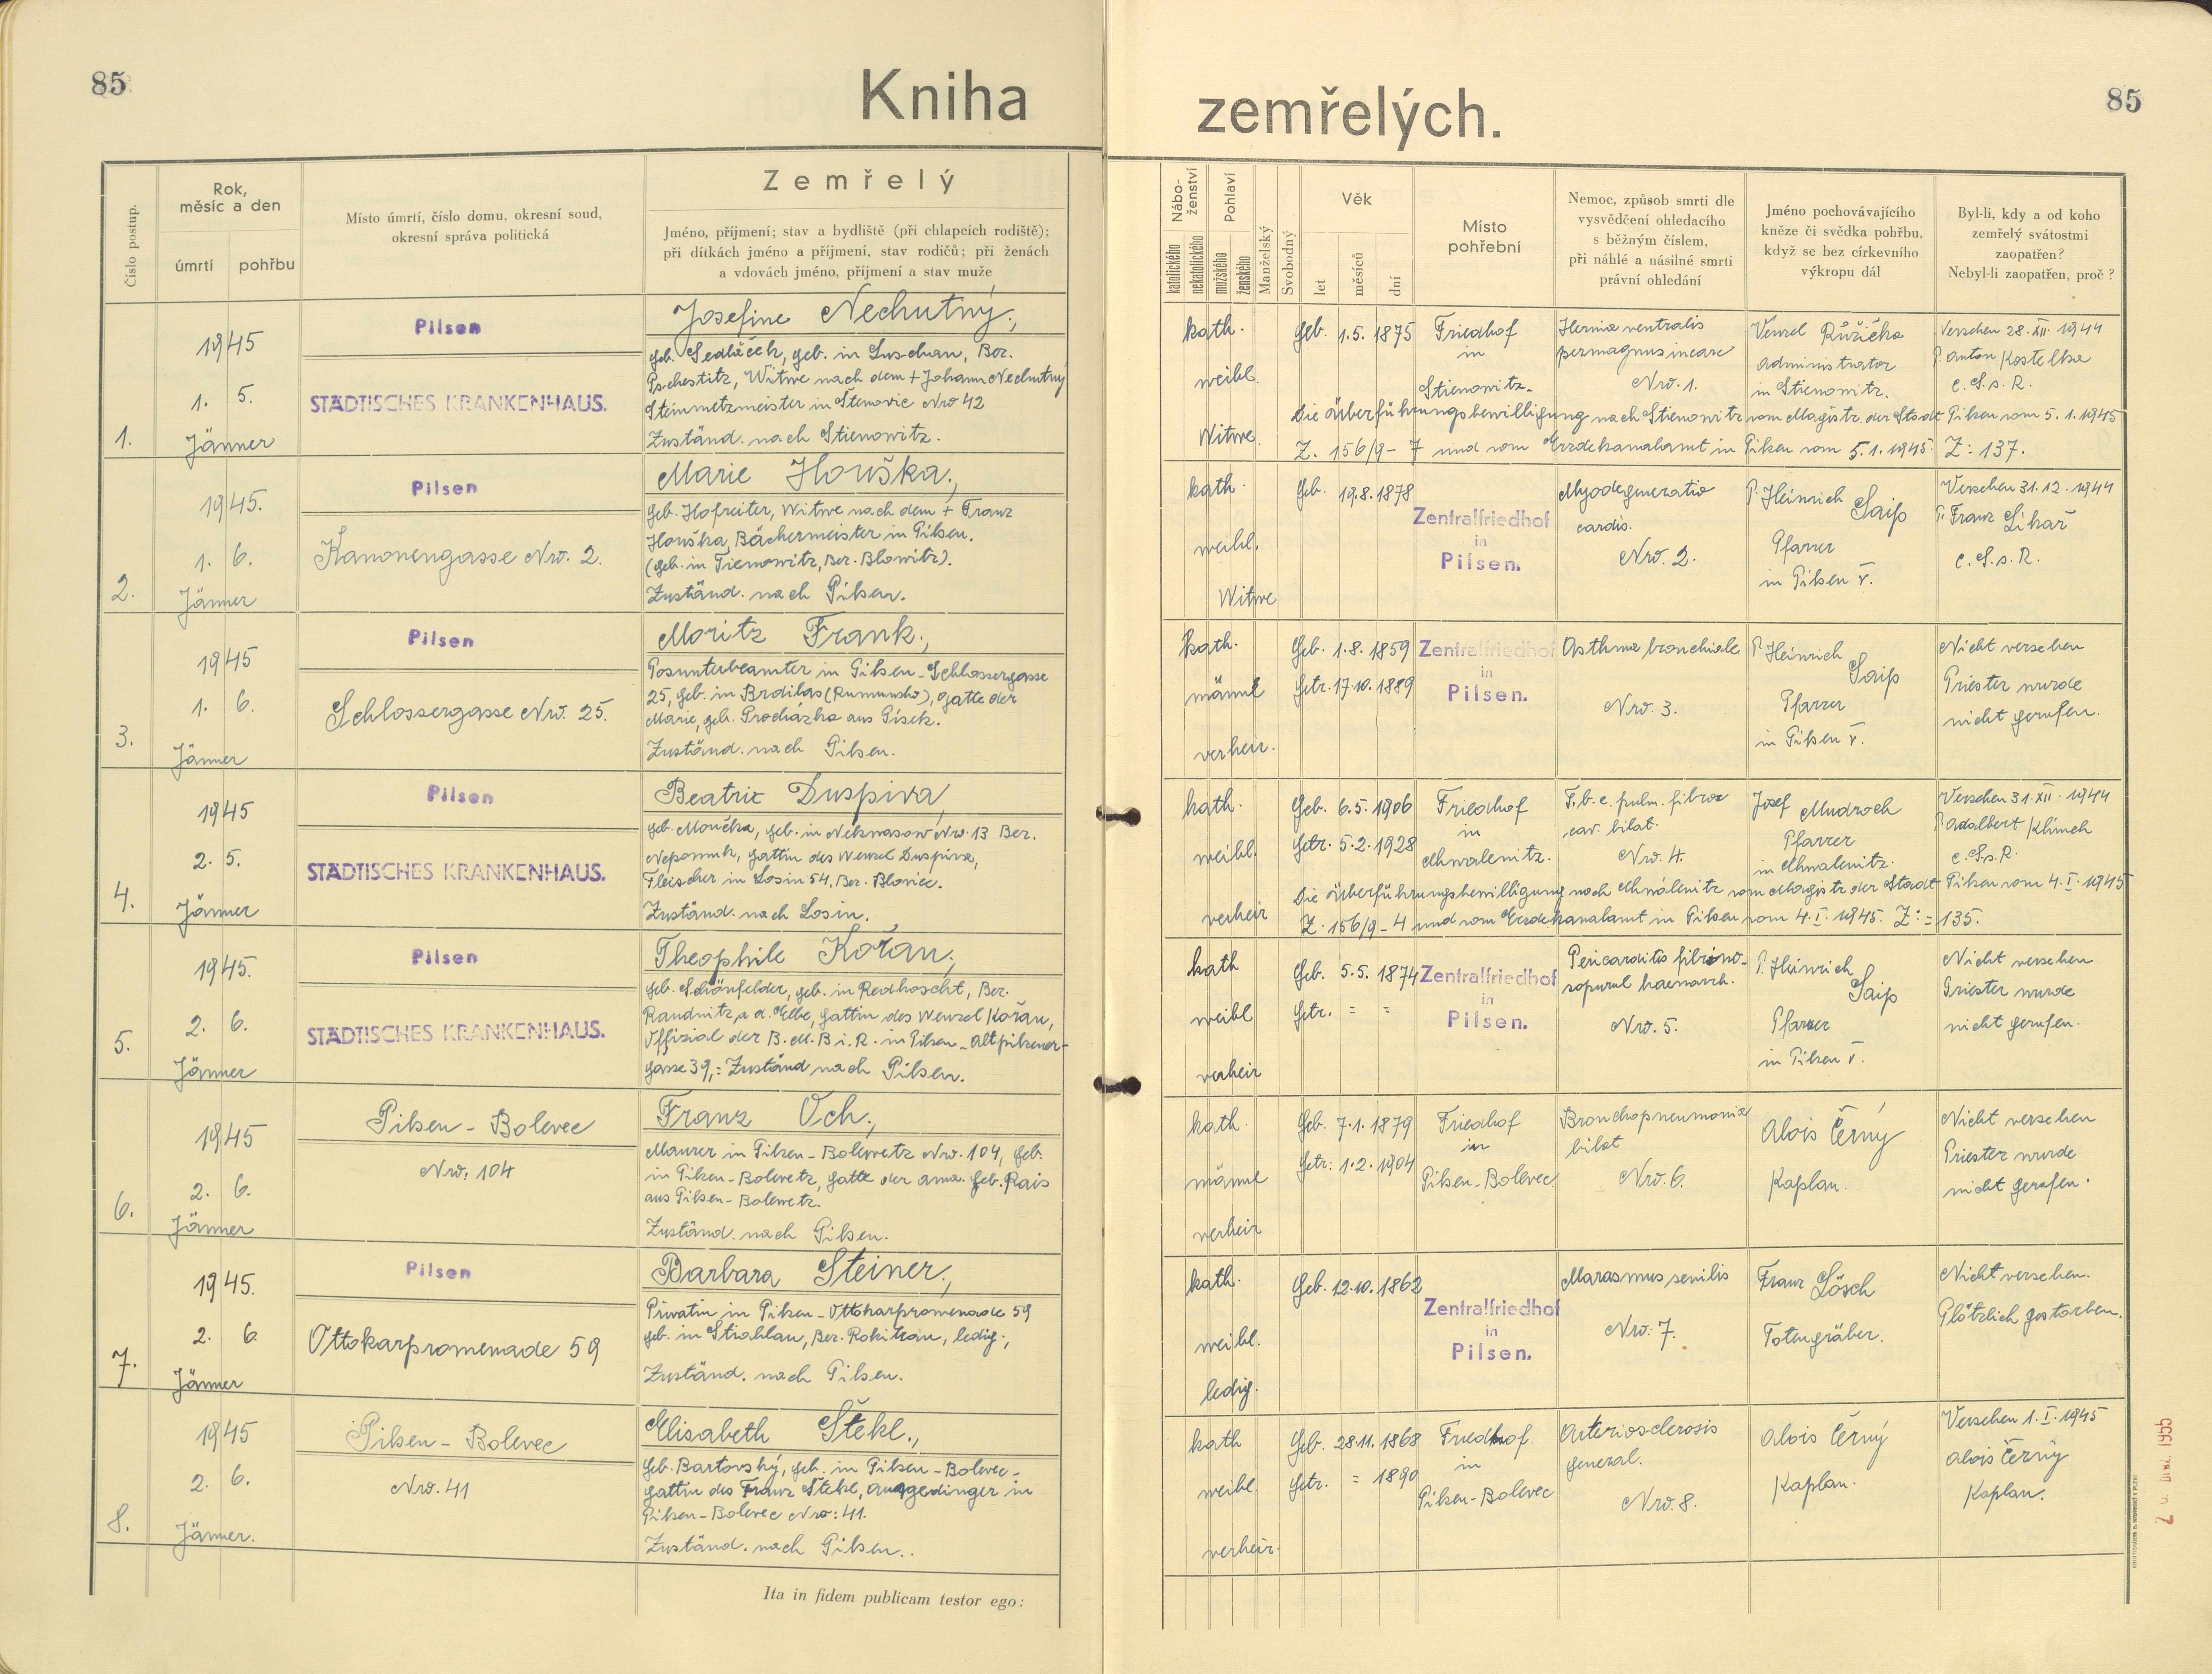 85
Kniha
zemřelých.
85
Číslo postup.
Rok,
měsíc a den
úmrtí
pohřbu
Místo úmrtí, číslo domu, okresní soud,
okresní správa politická
Zemřelý
Jméno, příjmení; stav a bydliště (při chlapcích rodiště);
při dítkách jméno a příjmení, stav rodičů; při ženách
a vdovách jméno, příjmení a stav muže
Nábo-
ženství
katolického
nekatolického
Pohlaví
mužského
ženského
Manželský
Svobodný
Věk
let
měsíců
dní
Místo
pohřební
Nemoc, způsob smrti dle
vysvědčení ohledacího
s běžným číslem,
při náhlé a násilné smrti
právní ohledání
Jméno pochovávajícího
kněze či svědka pohřbu,
když se bez církevního
výkropu dál
Byl-li, kdy a od koho
zemřelý svátostmi
zaopatřen?
Nebyl-li zaopatřen, proč?
1.
1945
1. 5.
Jänner
Pilsen
STÄDTISCHES KRANKENHAUS.
Josefine Nechutný.,
geb. Sedláček, geb. in Luschan, Bez.
Pschestitz, Witwe nach dem + Johann Nechutný
Steinmetzmeister in Štěnovic Nro 42
Zuständ. nach Stienowitz.
kath.
weibl.
Witwe.
Geb. 1.5. 1875
Friedhof
in
Stienowitz.
Hernia ventralis
permagnus incarc
Nro. 1.
Wenzel Růžička
administrator
in Stienowitz.
Versehen 28. XII. 1944
P. Anton Kostelka
C.S.s.R.
Die Überführungsbewilligung nach Stienowitz vom Magistr. der Stadt Pilsen vom 5. 1. 1945
Z. 156/9 - 7 und vom Erzdekanalamt in Pilsen vom 5. 1. 1945. Z: 137.
2.
1945.
1. 6.
Jänner
Pilsen
Kanonengasse Nro. 2.
Marie Houška.,
geb. Hofreiter, Witwe nach dem + Franz
Houška, Bäckermeister in Pilsen.
(geb. in Tienowitz, Bez. Blowitz).
Zuständ. nach Pilsen.
kath.
weibl.
Witwe
Geb. 19.8. 1878
Zentralfriedhof
in
Pilsen.
Myodegeneratio
cardis.
Nro. 2.
P. Heinrich Saip
Pfarrer
in Pilsen V.
Versehen 31.12. 1944
P. Franz Sikař
C.S.s.R.
3.
1945
1. 6.
Jänner
Pilsen
Schlossergasse Nro. 25.
Moritz Frank.,
Posunterbeamter in Pilsen - Schlossergasse
25, geb. in Brdilas (Rumunsko), Gatte der
Marie, geb. Procházka aus Písek.
Zuständ. nach Pilsen.
kath.
männl
verheir.
Geb. 1.8. 1859
Getr. 17.10. 1889
Zentralfriedhof
in
Pilsen.
Asthma bronchiale
Nro. 3.
P. Heinrich Saip
Pfarrer
in Pilsen V.
Nicht versehen
Priester wurde
nicht gerufen.
4.
1945
2. 5.
Jänner
Pilsen
STÄDTISCHES KRANKENHAUS.
Beatrix Duspiva,
geb. Moučka, geb. in Nekwasow Nro. 13 Bez.
Nepomuk, Gattin des Wenzel Duspiva,
Fleischer in Losin 54, Bez. Blovic.
Zuständ. nach Losin.
kath.
weibl.
verheir
Geb. 6.5. 1906
Getr. 5.2. 1928
Friedhof
in
Chwalenitz.
T.b.c. pulm. fibroz
cav. bilat.
Nro. 4.
Josef Mudroch
Pfarrer
in Chwalenitz.
Versehen 31. XII. 1944
P. Adalbert Klimeh
C.S.s.R.
Die Überführungsbewilligung nach Chwálenitz vom Magistr. der Stadt Pilsen vom 4. I. 1945
Z. 156/9 - 4 und vom Erzdekanalamt in Pilsen vom 4. I. 1945. Z: = 135.
5.
1945.
2. 6.
Jänner
Pilsen
STÄDTISCHES KRANKENHAUS.
Theophile Kořan.,
geb. Schönfelder, geb. in Redhoscht, Bez.
Raudnitz, a. d. Elbe, Gattin des Wenzel Kořan,
Offizial der B.M.B i.R. in Pilsen - Altpilsener-
gasse 39, = Zuständ nach Pilsen.
kath
weibl
verheir
Geb. 5.5. 1874
Getr. = =
Zentralfriedhof
in
Pilsen.
Pericarditis fibrino-
sopurul haemorrh.
Nro. 5.
P. Heinrich Saip
Pfarrer
in Pilsen V.
Nicht versehen
Priester wurde
nicht gerufen.
6.
1945
2. 6.
Jänner
Pilsen - Bolevec
Nro. 104
Franz Och.,
Maurer in Pilsen - Bolewetz Nro. 104, geb.
in Pilsen - Bolewetz, Gatte der Anna geb. Rais
aus Pilsen - Bolewetz.
Zuständ. nach Pilsen.
kath.
männl
verheir
Geb. 7.1. 1879
Getr: 1.2. 1904
Friedhof
in
Pilsen-Bolevec
Bronchopneumonia
bilat
Nro. 6.
Alois Černý
Kaplan.
Nicht versehen
Priester wurde
nicht gerufen.
7.
1945.
2. 6
Jänner
Pilsen
Ottokarpromenade 59
Barbara Steiner.,
Privatin in Pilsen - Ottokarpromenade 59
geb. in Stiahlau, Bez. Rokitzan, ledig.,
Zuständ. nach Pilsen.
kath.
weibl.
ledig.
Geb. 12.10. 1862
Zentralfriedhof
in
Pilsen.
Marasmus senilis
Nro: 7.
Franz Lösch
Totengräber.
Nicht versehen.
Plötzlich gestorben.
8.
1945
2. 6.
Jänner.
Pilsen - Bolevec
Nro. 41
Elisabeth Štekl.,
geb. Bartovský, geb. in Pilsen - Bolevec -
Gattin des Franz Štekl, Ausgedinger in
Pilsen - Bolevec Nro: 41.
Zuständ. nach Pilsen..
kath
weibl.
verheir.
Geb. 28.11. 1868
Getr. = 1890
Friedhof
in
Pilsen-Bolevec
Arteriosclerosis
general.
Nro. 8.
Alois Černý
Kaplan.
Versehen 1. I. 1945
Alois Černý
Kaplan.
Ita in fidem publicam testor ego: